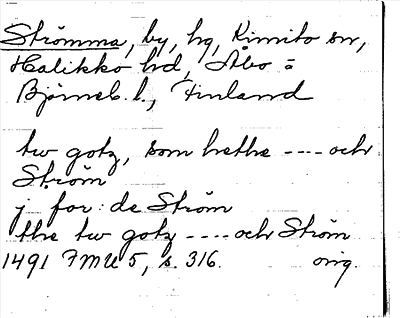 Strömma, by, hg, Kimito sn,
Halikko hd, Åbo =
Björneb. l., Finland
tw gotz, som hethe ---- och
Ström
j for: de Ström
the tw gotz ---- och Ström
1491 FMU 5, s. 316. orig.